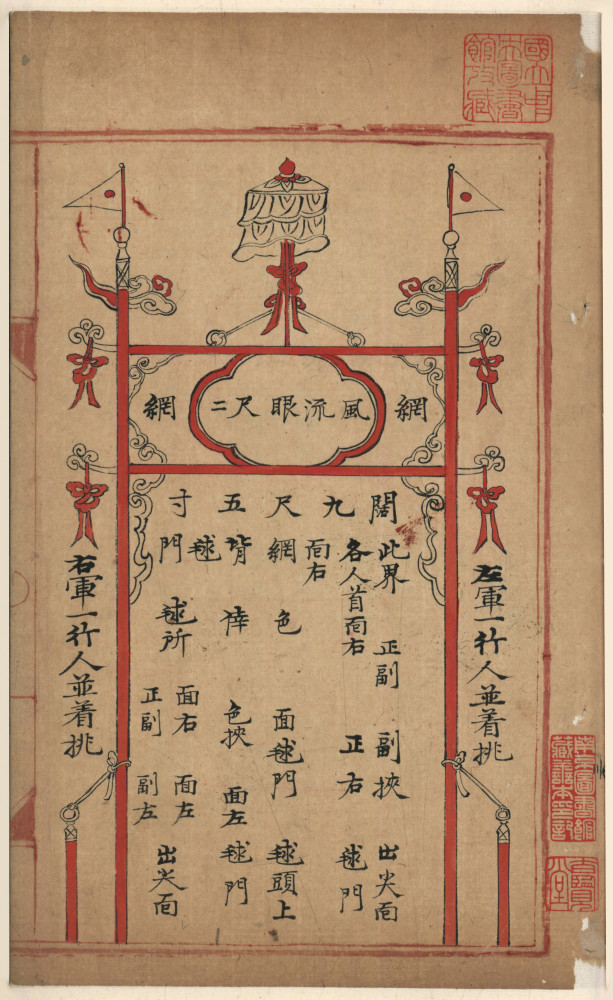 國立中
央圖書
館收藏
網 風流眼尺二 網
左軍一行人並着挑
闊九尺五寸
此界 正副 副挾 出尖面
各人首面右 正右 毬門
面右
網色 面毬門 毬頭上
背倖 色挾 面左 毬門
毬
門 毬所 面右 面左 出尖面
正副 副左
右軍一行人並着挑